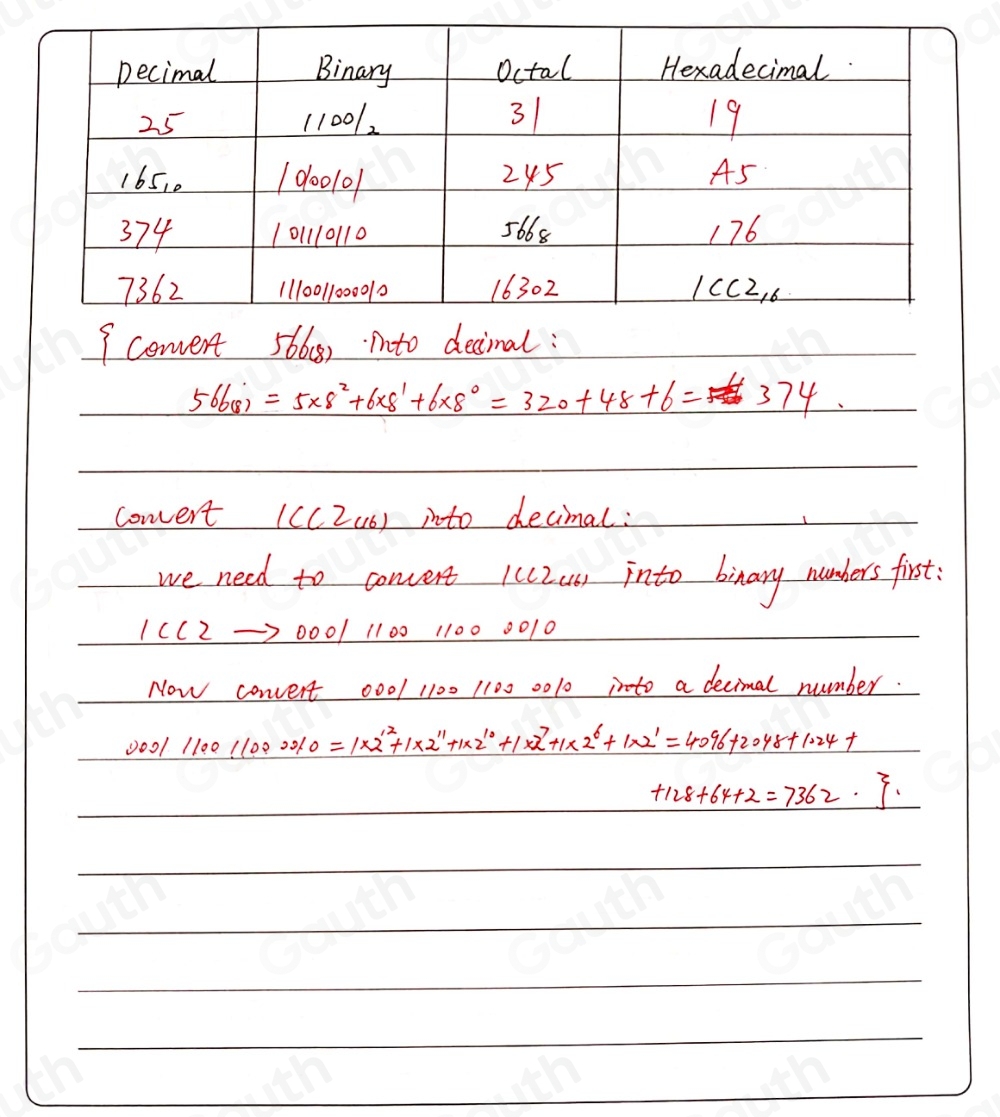 Decimal Binary Octal Hexadecimal
25 11001₂ 31 19
165₁₀ 10100101 245 A5
374 101110110 566₈ 176
7362 1110011000010 16302 1CC2₁₆
{ Convert 566(8) into decimal:
566(8) = 5×8²+6×8¹+6×8⁰ = 320+48+6 = 374.
Convert 1CC2(16) into decimal:
we need to convert 1CC2(16) into binary numbers first:
1CC2 → 0001 1100 1100 0010
Now convert 0001 1100 1100 0010 into a decimal number.
0001 1100 1100 0010 = 1×2¹²+1×2¹¹+1×2¹⁰+1×2⁷+1×2⁶+1×2¹ = 4096+2048+1024+
+128+64+2=7362. }.